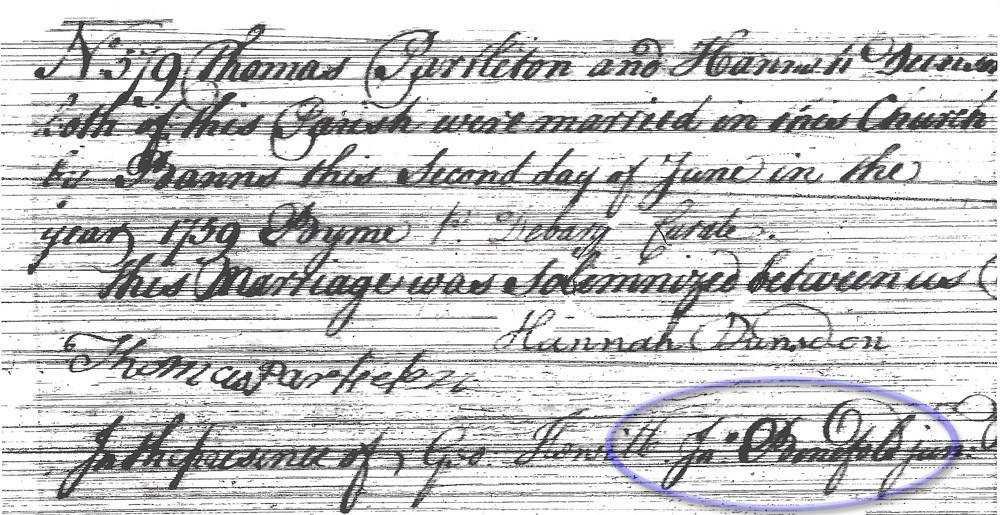 No 579 Thomas Partleton and Hannah
both of this Parish were married in this Church
by Banns this Second day of June in the
year 1759 By me Pr. Debary Curate.
This Marriage was Solemnized between us
Hannah Dunsdon
Thomas Partleton
In the presence of Geo. Howitt Jn. Bonefold junr.